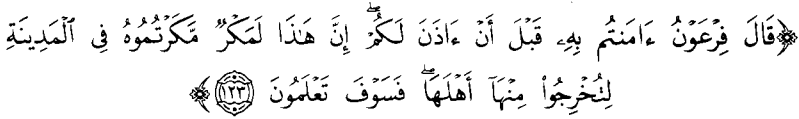 ﴿قَالَ فِرۡعَوۡنُ ءَامَنتُم بِهِۦ قَبۡلَ أَنۡ ءَاذَنَ لَكُمۡۖ إِنَّ هَٰذَا لَمَكۡرٞ مَّكَرۡتُمُوهُ فِي ٱلۡمَدِينَةِ
لِتُخۡرِجُواْ مِنۡهَآ أَهۡلَهَاۖ فَسَوۡفَ تَعۡلَمُونَ ١٢٣﴾